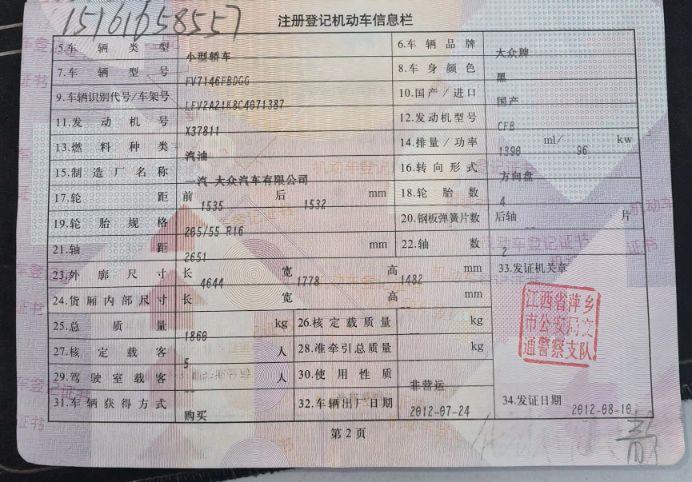 15161658557
注册登记机动车信息栏
5.车辆类型 小型轿车 6.车辆品牌 大众牌
7.车辆型号 FV7146FBDGG 8.车身颜色 黑
9.车辆识别代号/车架号 LFV2A21K8C4071387 10.国产/进口 国产
11.发动机号 X37811 12.发动机型号 CFB
13.燃料种类 汽油 14.排量/功率 1390 ml/ 96 kw
15.制造厂名称 一汽-大众汽车有限公司 16.转向形式 方向盘
17.轮距 前 1535 后 1532 mm 18.轮胎数 4
19.轮胎规格 205/55 R16 20.钢板弹簧片数 后轴 片
21.轴距 2651 mm 22.轴数 2
23.外廓尺寸 长 4644 宽 1778 高 1482 mm 33.发证机关章
24.货厢内部尺寸 长 宽 高 mm
江西省萍乡
市公安局交
通警察支队
25.总质量 1860 kg 26.核定载质量 kg
27.核定载客 5 人 28.准牵引总质量 kg
29.驾驶室载客 人 30.使用性质 非营运
31.车辆获得方式 购买 32.车辆出厂日期 2012-07-24 34.发证日期 2012-08-10
第2页